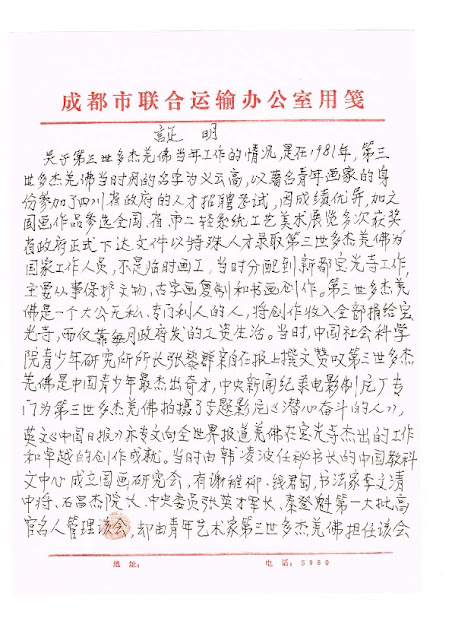 成都市联合运输办公室用笺
証 明
关于第三世多杰羌佛当年工作的情况，是在1981年，第三
世多杰羌佛当时用的名字为义云高，以著名青年画家的身
份参加了四川省政府的人才招聘考试，因成绩优异，加之
国画作品参选全国、省、市二轻系统工艺美术展览多次获奖
省政府正式下达文件以特殊人才录取第三世多杰羌佛为
国家工作人员，不是临时画工，当时分配到新都宝光寺工作，
主要从事保护文物、古字画复制和书画创作。第三世多杰羌
佛是一个大公无私、专门利人的人，将创作收入全部捐给宝
光寺，而仅靠每月政府发的工资生活。当时，中国社会科学
院青少年研究所所长张黎群亲自在报上撰文赞叹第三世多杰
羌佛是中国青少年最杰出奇才，中央新闻纪录电影制片厂专
门为第三世多杰羌佛拍摄了专题影片《潜心奋斗的人》，
英文《中国日报》亦专文向全世界报道羌佛在宝光寺杰出的工作
和卓越的创作成就。当时由韩凌波任秘书长的中国教科
文中心成立国画研究会，有谢稚柳、钱君匋、书法家李文清
中将、石昌杰院长、中央委员张英才军长、秦登魁第一大批高
官名人管理该会，却由青年艺术家第三世多杰羌佛担任该会
地 址： 电 话：5989